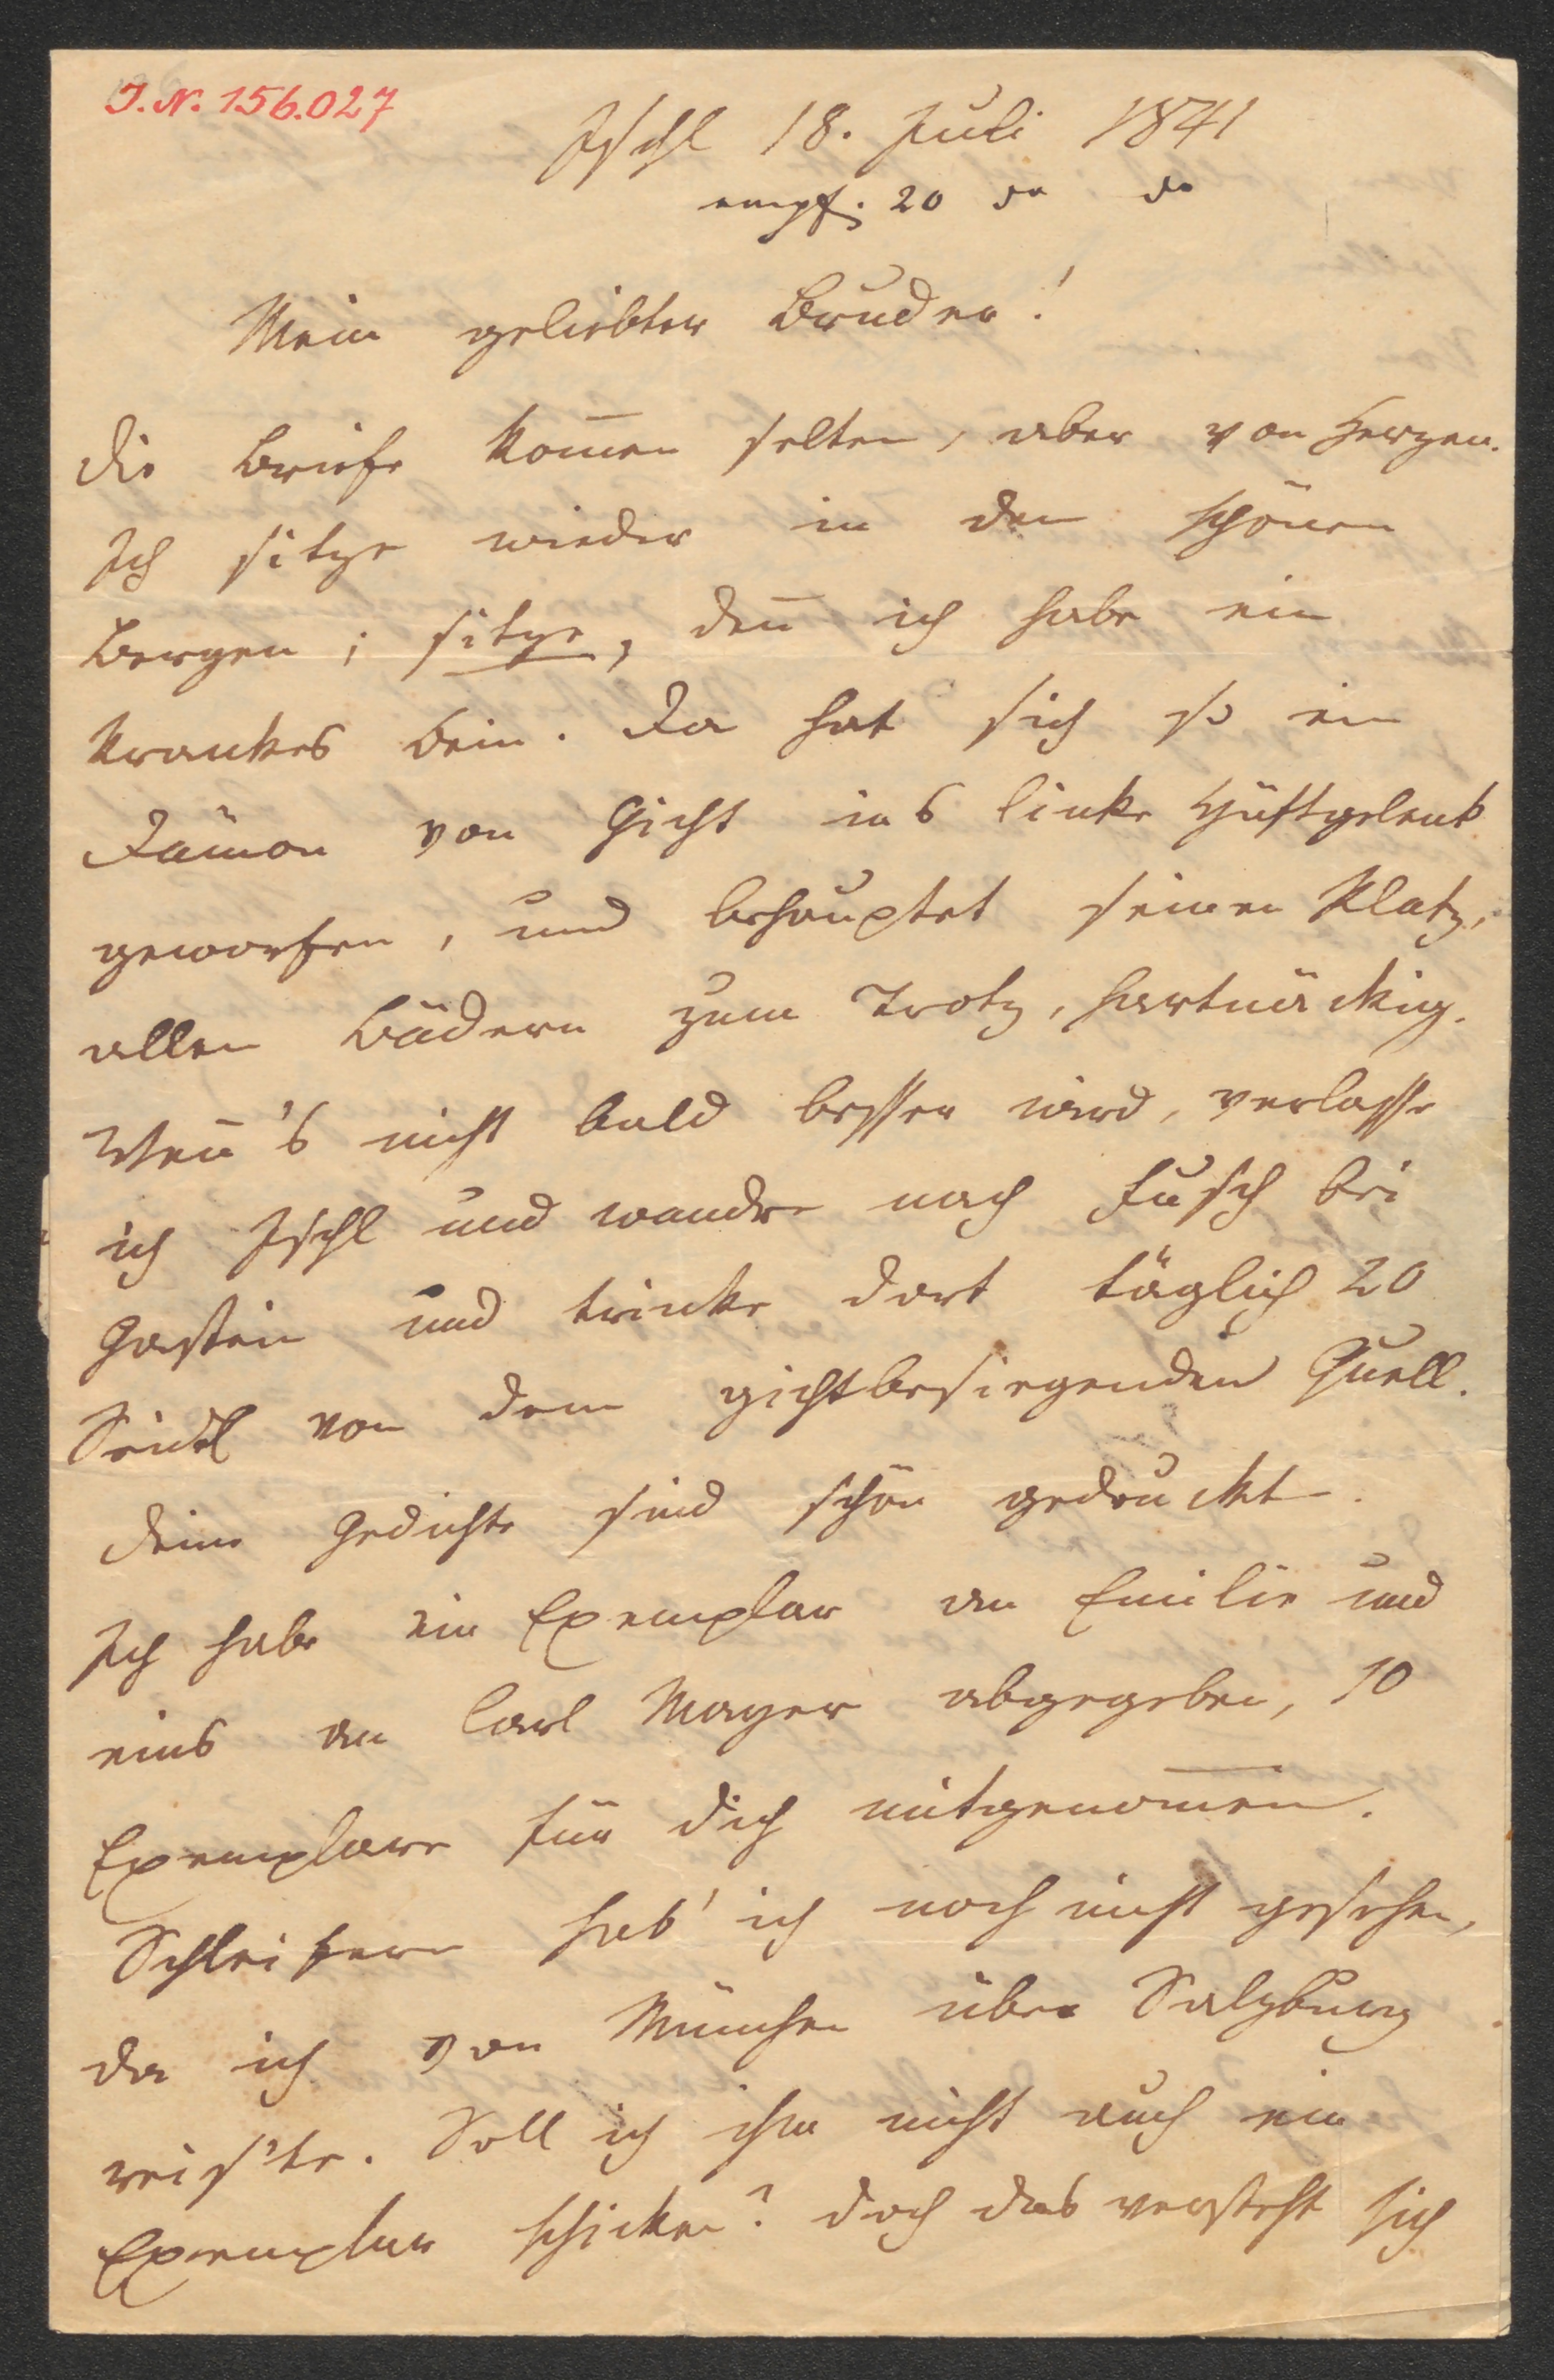 I. N. 156.027
Ischl 18. Juli 1841
empf. 20 do do
Mein geliebter Bruder!
Die Briefe kom̄en selten, aber von Herzen.
Ich sitze wieder in den schönen
Bergen; sitze, den̄ ich habe ein
krankes Bein. Da hat sich so ein
Dämon von Gicht ins linke Hüftgelenk
geworfen, und behauptet seinen Platz,
allen Bädern zum Trotz, hartnäckig.
Wen̄'s nicht bald besser wird, verlasse
ich Ischl und wandre nach Fusch bei
Gastein und trinke dort täglich 20
Seidl von dem gichtbesiegenden Quell.
Deine Gedichte sind schön gedruckt.
Ich habe ein Exemplar an Emilie und
eins an Carl Mayer abgegeben, 10
Exemplare für dich mitgenom̄en.
Schleifern hab' ich noch nicht gesehen,
da ich von München über Salzburg
reis'te. Soll ich ihm nicht auch ein
Exemplar schicken? doch das versteht sich